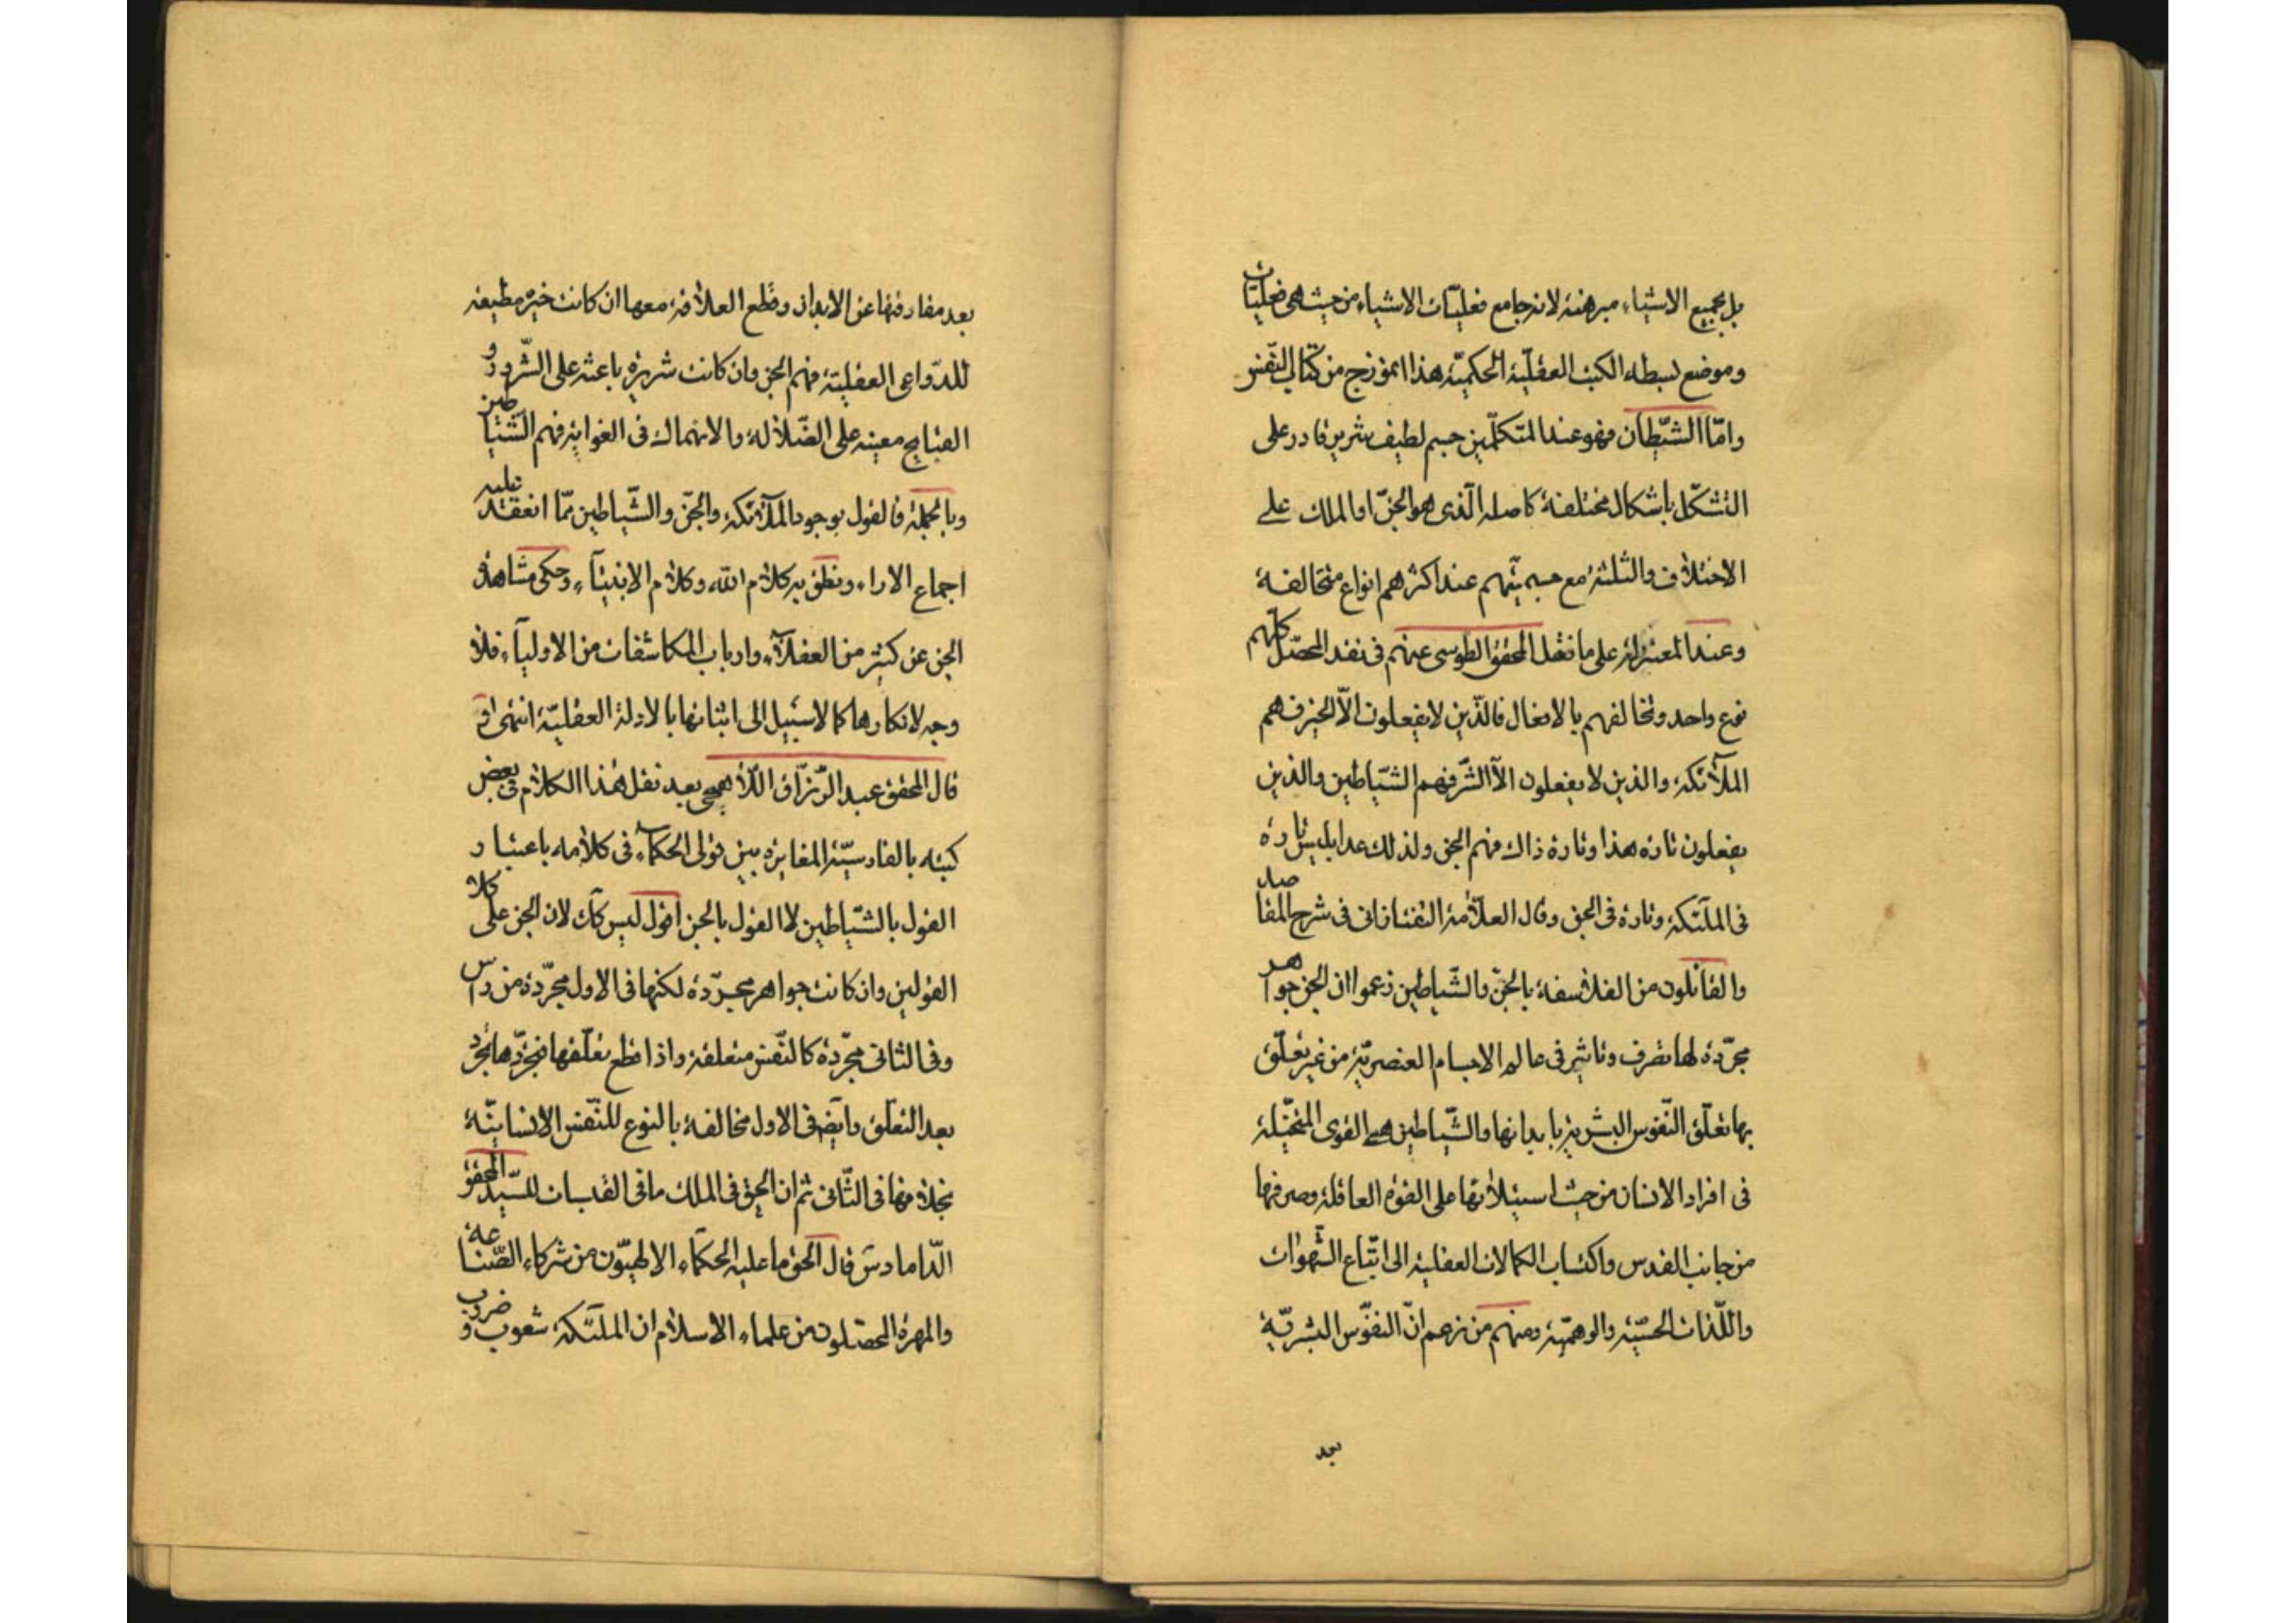 بل بجميع الاشياء مبرهنة لانه جامع فعليّات الاشياء من حيث هى فعليّات
وموضع بسطه الكتب العقليّة الحكميّة هذا انموزج من كتاب النّفس
وامّا الشّيطان فهو عند المتكلّمين جسم لطيف شرير قادر على
التشكّل باشكال مختلفة كاصله الّذى هو الجنّ او الملك على
الاختلاف والثلثة مع جسميّتهم عند اكثرهم انواع متخالفة
وعند المعتزلة على ما نقل المحقق الطوسى عنهم فى نقد المحصّل كلّهم
نوع واحد وتخالفهم بالافعال فالّذين لا يفعلون الّا الخير فهم
الملآئكة والذين لا يفعلون الّا الشّر فهم الشيّاطين والذين
يفعلون تارة هذا وتارة ذاك فهم الجن ولذلك عد ابليس تارة
فى الملٰئكة وتارة فى الجن وقال العلّامة التفتازانى فى شرح المقاصد
والقائلون من الفلاسفة بالجنّ والشّياطين زعموا ان الجن جواهر
مجرّدة لها تصرف وتاثير فى عالم الاجسام العنصريّة من غير تعلّق
بها تعلّق النّفوس البشرية بابدانها والشّياطين هى القوى المتخيّلة
فى افراد الانسان من حيث استيلائها على القوة العاقلة وصرفها
من جانب القدس واكتساب الكمالات العقلية الى اتّباع الشّهوات
واللّذات الحسّيّة والوهميّة ومنهم من زعم انّ النفوّس البشريّة
بعد
بعد مفارقتها عن الابدان وقطع العلاقة معها ان كانت خيّرة مطيعة
للدّواعى العقلية فهم الجن وان كانت شريرة باعثة على الشّرور و
القبايح معينة على الضّلالة والانهماك فى الغواية فهم الشّياطين
وبالجملة فالقول بوجود الملآئكة والجّن والشّياطين ممّا انعقد عليه
اجماع الاراء ونطق به كلام الله وكلام الانبيآء وحكى مشاهدة
الجن عن كثير من العقلآء وارباب المكاشفات من الاوليآء فلا
وجه لانكارها كما لا سبيل الى اثباتها بالادلة العقليّة انتهى
قال المحقق عبد الرّزّاق اللّاهجى بعد نقل هٰذا الكلام فى بعض
كتبه بالفارسيّة المغايرة بين قولى الحكمآء فى كلامه باعتبار
القول بالشيّاطين لا القول بالجن اقول ليس كك لان الجن على كلا
القولين وان كانت جواهر مجرّدة لكنها فى الاول مجرّدة من راس
وفى الثانى مجرّدة كالنّفس متعلقة واذا قطع تعلّقها فتجرّدها تجرّد
بعد التعلّق وايضا فى الاول مخالفة بالنوع للنّفس الانسانيّة
بخلافها فى الثّانى ثم ان الحق فى الملك ما فى القبسات للسّيد المحقق
الدّاماد س قال الحق ما عليه الحكمآء الالهيّون من شركاء الصّناعة
والمهرة المحصّلون من علماء الاسلام ان الملٰئكة شعوب وضروب